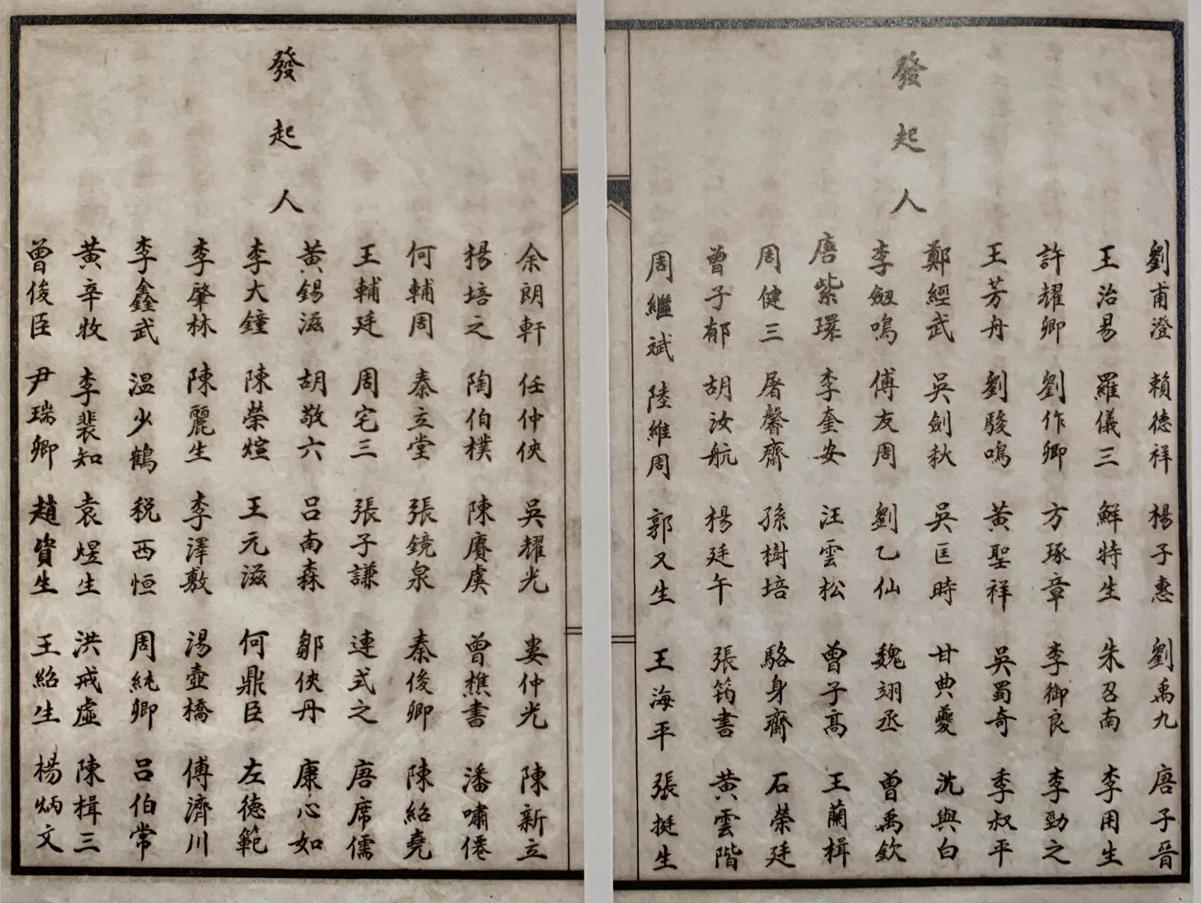 發起人
劉甫澄 賴德祥 楊子惠 劉禹九 唐子晉
王治易 羅儀三 鮮特生 朱召南 李用生
許耀卿 劉作卿 方琢章 李御良 李勁之
王芳舟 劉駿鳴 黃聖祥 吳蜀奇 季叔平
鄭經武 吳劍秋 吳匡時 甘典夔 沈與白
李劔鳴 傅友周 劉乙仙 魏翊丞 曾禹欽
唐紫環 李奎安 汪雲松 曾子髙 王蘭楫
周健三 屠馨齋 孫樹培 駱身齋 石榮廷
曾子郁 胡汝航 楊廷午 張筠書 黃雲階
周繼斌 陸維周 郭又生 王海平 張挺生
發起人
余朗軒 任仲俠 吳耀光 婁仲光 陳新立
楊培之 陶伯樸 陳賡虞 曾樵書 潘嘯僊
何輔周 秦立堂 張鏡泉 秦俊卿 陳紹堯
王輔廷 周宅三 張子謙 連式之 唐席儒
黃錫滋 胡敬六 呂南森 鄒俠丹 康心如
李大鐘 陳榮煊 王元滋 何鼎臣 左德範
李肇林 陳麗生 李澤敷 湯壺橋 傅濟川
李鑫武 温少鶴 税西恒 周純卿 呂伯常
黃辛牧 李裴知 袁煜生 洪戒虛 陳楫三
曾俊臣 尹瑞卿 趙資生 王紹生 楊炳文